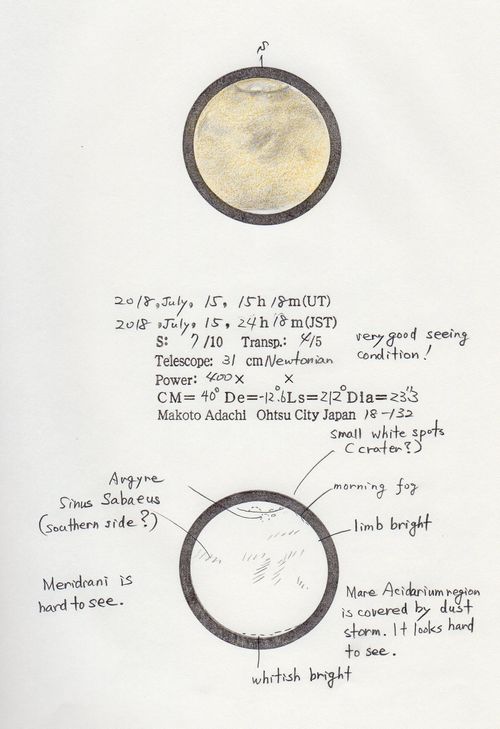 S
2018, July, 15, 15h 18m(UT)
2018, July, 15, 24h 18m(JST)
S: 7/10 Transp.: 4/5
very good seeing
condition!
Telescope: 31 cm/Newtonian
Power: 400× ×
CM= 40° De=-12.°6 Ls=212° Dia=23."3
Makoto Adachi Ohtsu City Japan 18-132
small white spots
(crater?)
Argyre
morning fog
Sinus Sabaeus
(southern side?)
limb bright
Meridrani is
hard to see.
Mare Acidarium region
is covered by dust
storm. It looks hard
to see.
whitish bright